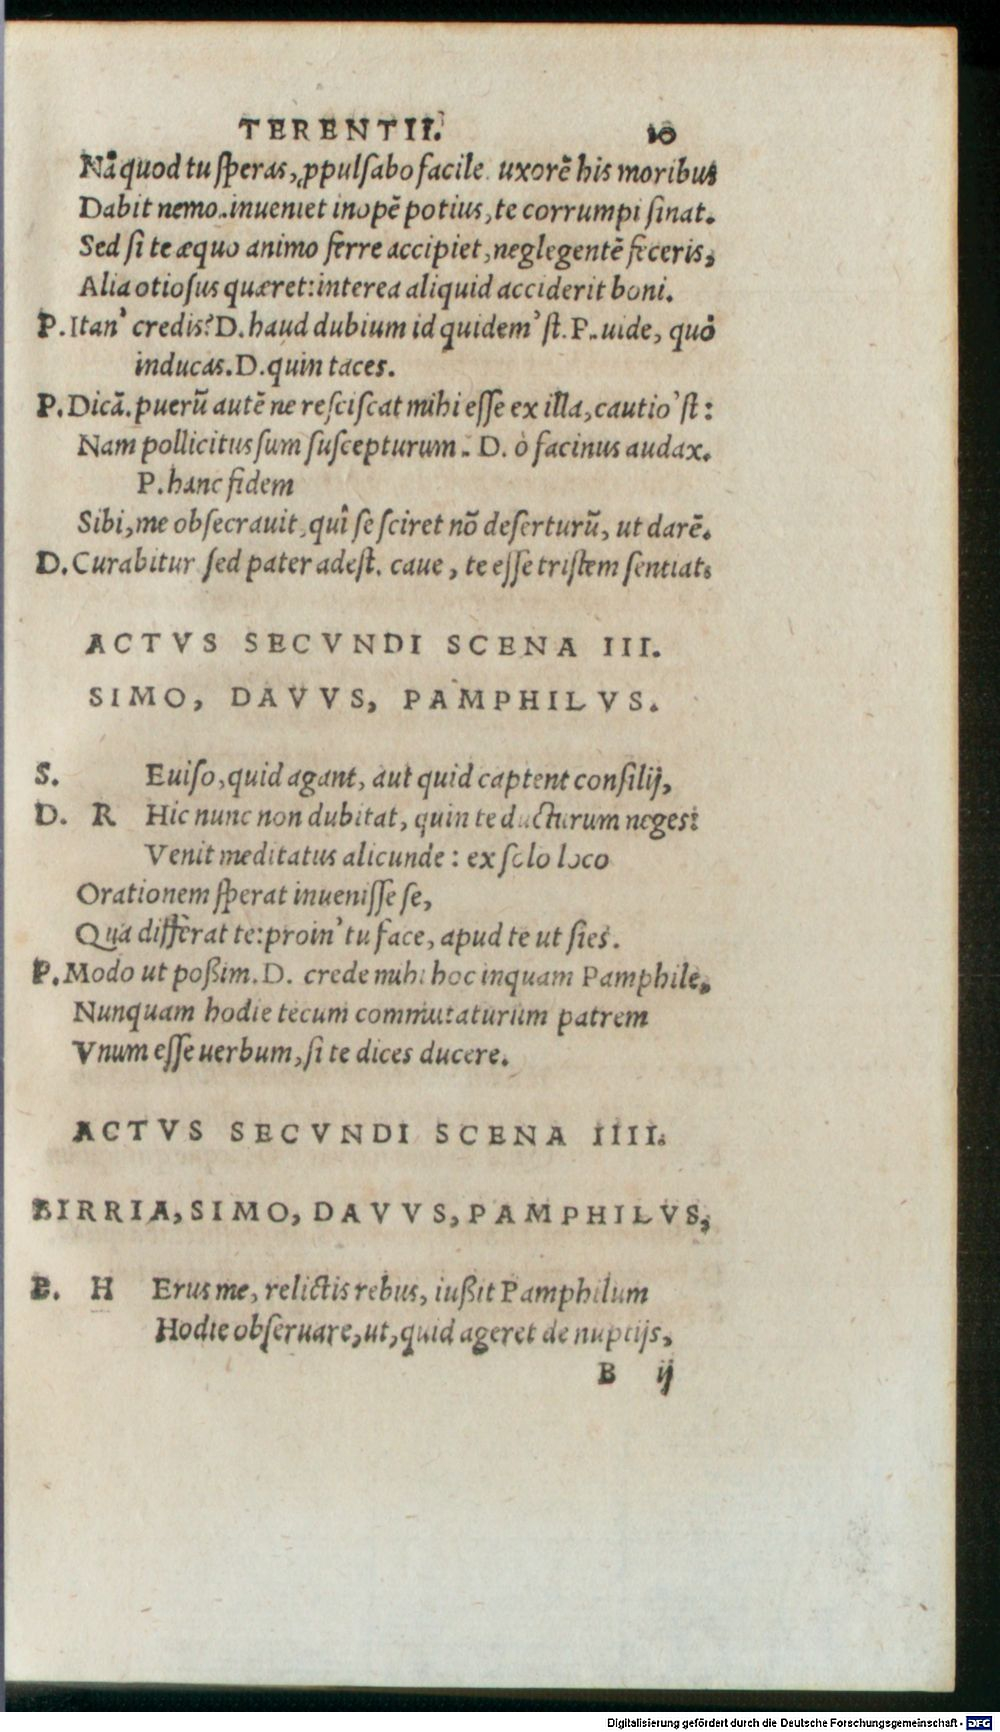 TERENTII. 10
Nã quod tu ſperas, ꝓpulſabo facile. uxorẽ his moribus
Dabit nemo. inueniet inopẽ potius, te corrumpi ſinat.
Sed ſi te æquo animo ferre accipiet, neglegentẽ feceris,
Alia otioſus quæret: interea aliquid acciderit boni.
P. Itan' credis? D. haud dubium id quidem'ſt. P. uide, quò
inducas. D. quin taces.
P. Dicã. puerũ autẽ ne reſciſcat mihi eſſe ex illa, cautio'ſt:
Nam pollicitus ſum ſuſcepturum. D. ò facinus audax.
P. hanc fidem
Sibi, me obſecrauit, quî ſe ſciret nõ deſerturũ, ut darẽ.
D. Curabitur ſed pater adeſt. caue, te eſſe triſtem ſentiat.
ACTVS SECVNDI SCENA III.
SIMO, DAVVS, PAMPHILVS.
S. Euiſo, quid agant, aut quid captent conſilij,
D. R Hic nunc non dubitat, quin te ducturum neges:
Venit meditatus alicunde: ex ſolo loco
Orationem ſperat inueniſſe ſe,
Qua differat te: proin' tu face, apud te ut ſies.
P. Modo ut poßim. D. crede mihi hoc inquam Pamphile,
Nunquam hodie tecum commutaturum patrem
Vnum eſſe uerbum, ſi te dices ducere.
ACTVS SECVNDI SCENA IIII.
BIRRIA, SIMO, DAVVS, PAMPHILVS,
B. H Erus me, relictis rebus, iußit Pamphilum
Hodie obſeruare, ut, quid ageret de nuptijs,
B ij
Digitalisierung gefördert durch die Deutsche Forschungsgemeinschaft - DFG